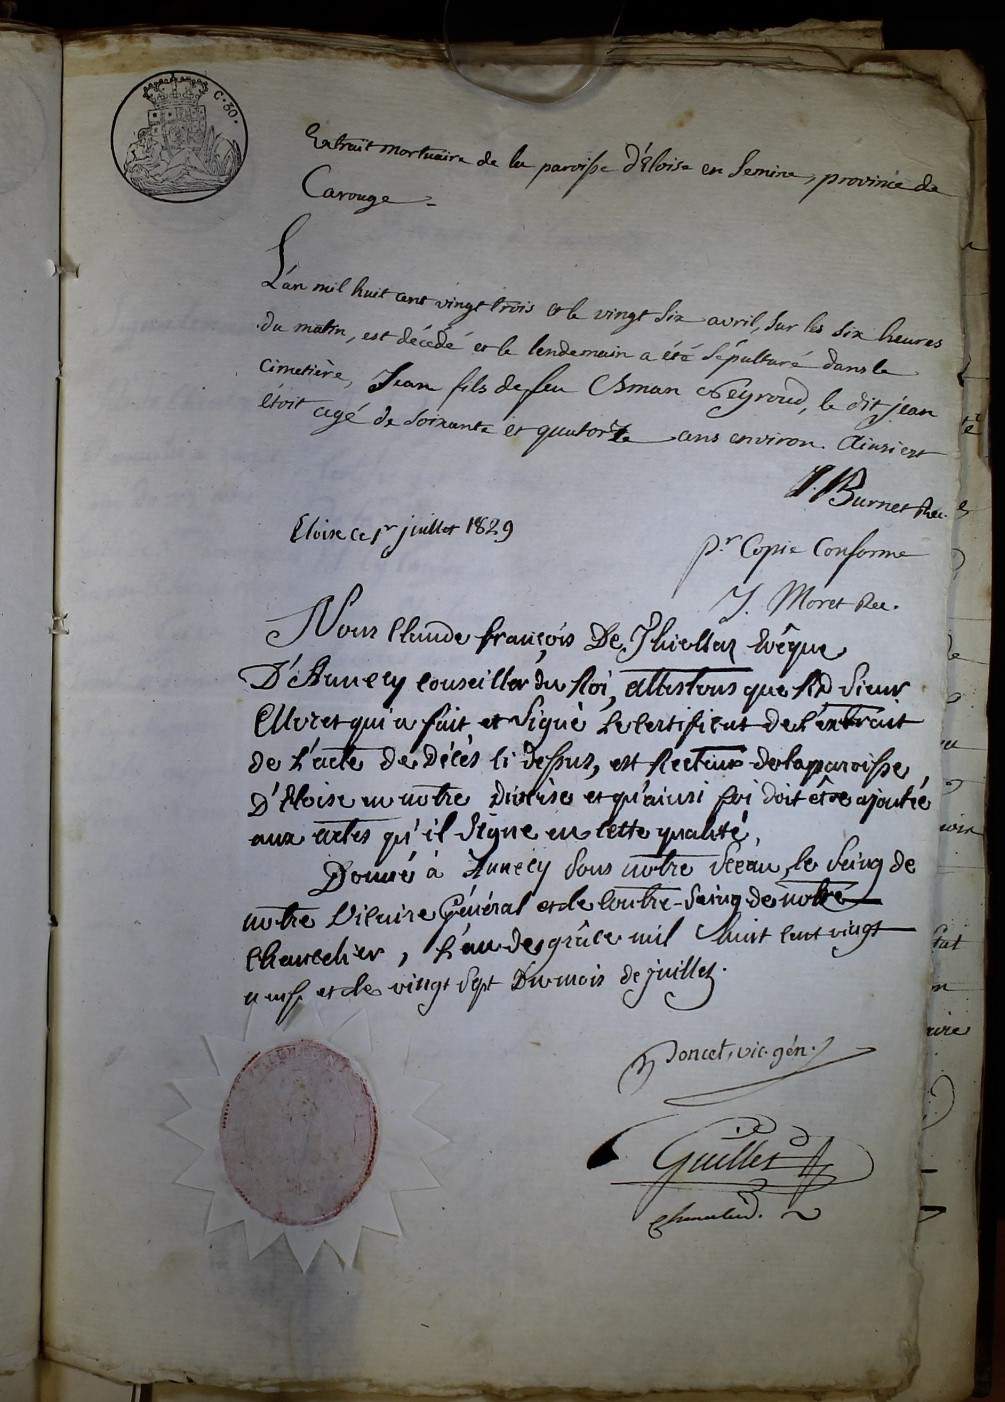 C. 30.
Extrait mortuaire de la paroisse d'Eloise en Semine, province de
Carouge =
L'an mil huit cent vingt trois et le vingt six avril, sur les six heures
du matin, est décédé et le lendemain a été sépulturé dans le
cimetière, Jean fils de feu Aman Peyroud, le dit jean
étoit agé de soixante et quatorze ans environ. Ainsi est
J. Burnet Rec.
Eloise ce 1r juillet 1829
pr. Copie Conforme
J. Moret Rec.
Nous Claude françois De Thiollaz Evêque
D'Annecy Conseiller du Roi, attestons que Rd Sieur
Moret qui a fait et signé le certificat de l'extrait
de l'acte de décès ci dessus, est Recteur de la paroisse
D'Eloise en notre Diocèse et qu'ainsi foi doit être ajoutée
aux actes qu'il signe en cette qualité.
Donné à Annecy sous notre sceau, le seing de
notre Vicaire Général et le contre-seing de notre
Chancelier, l'an de grâce mil huit cent vingt
neuf et le vingt sept du mois de juillet.
Poncet, vic. gén.
Guillet